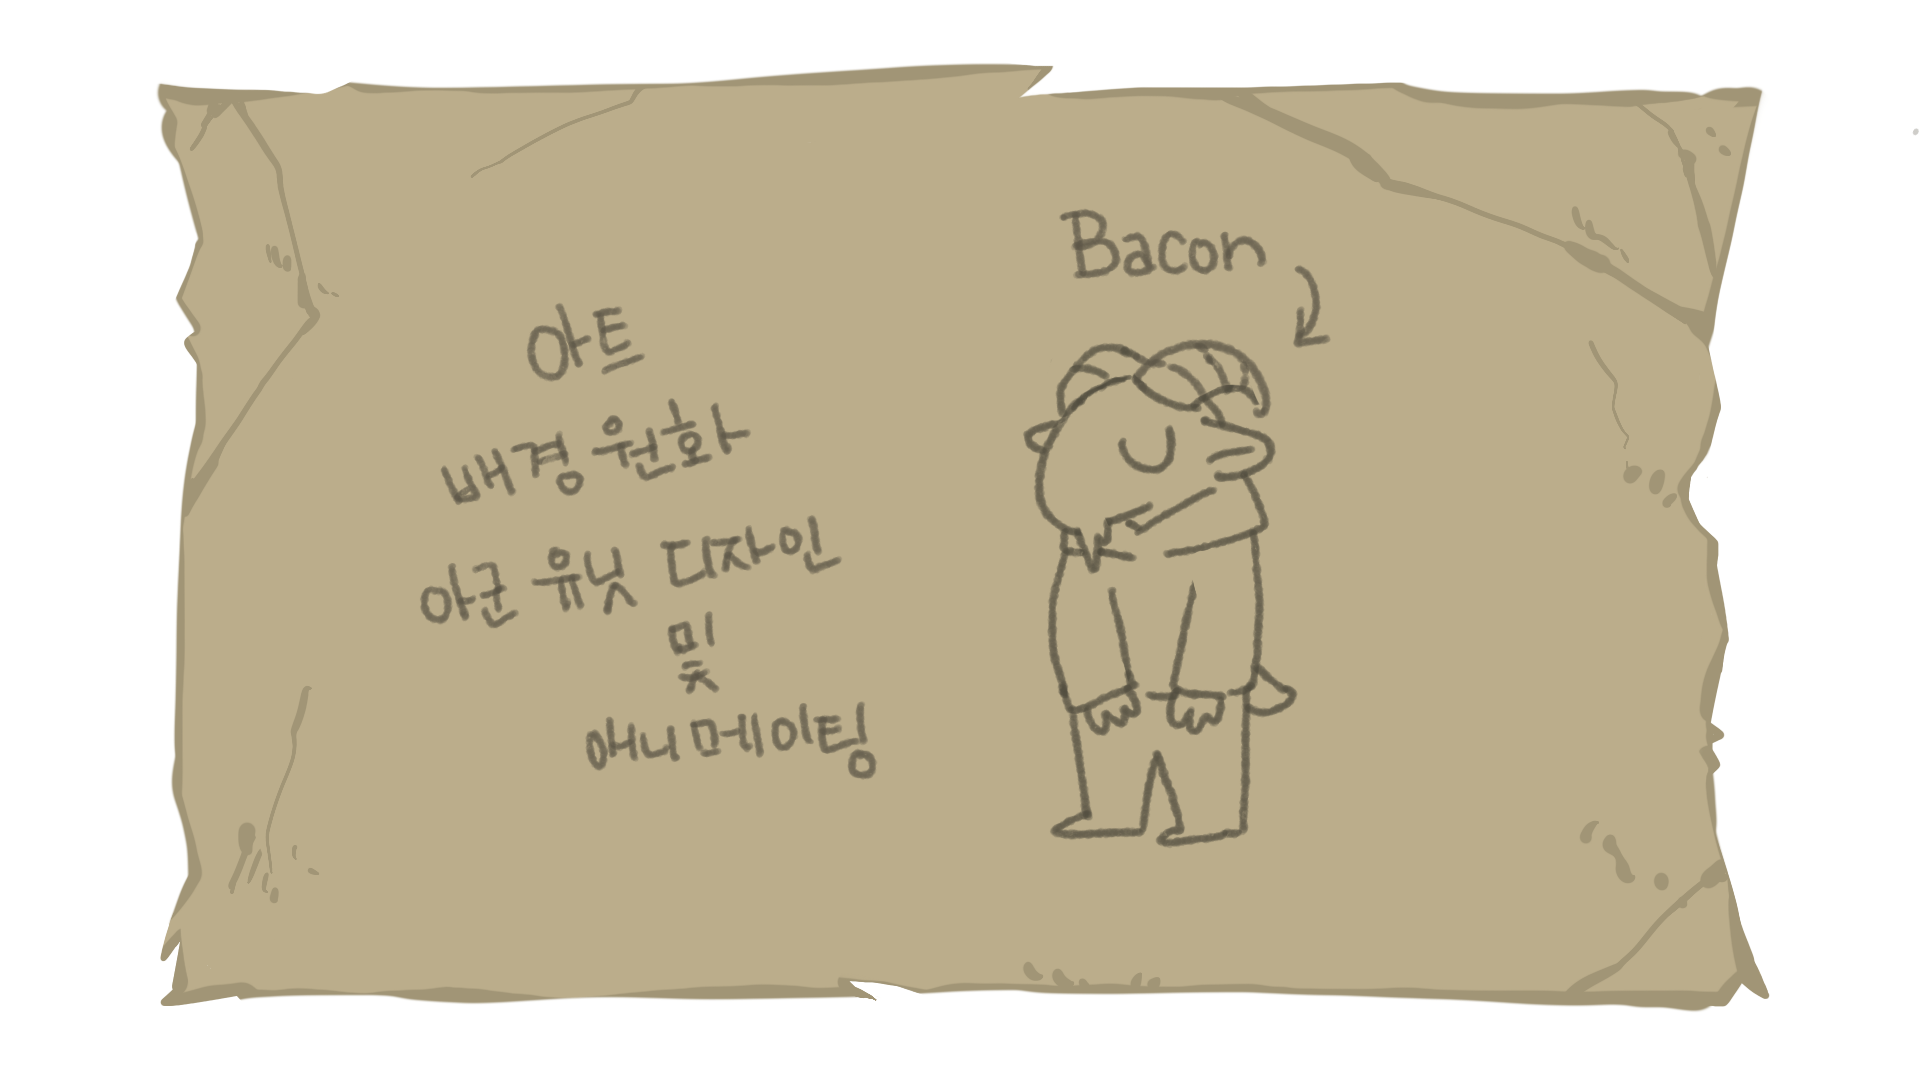 아트
배경 원화
아군 유닛 디자인
및
애니메이팅
Bacon